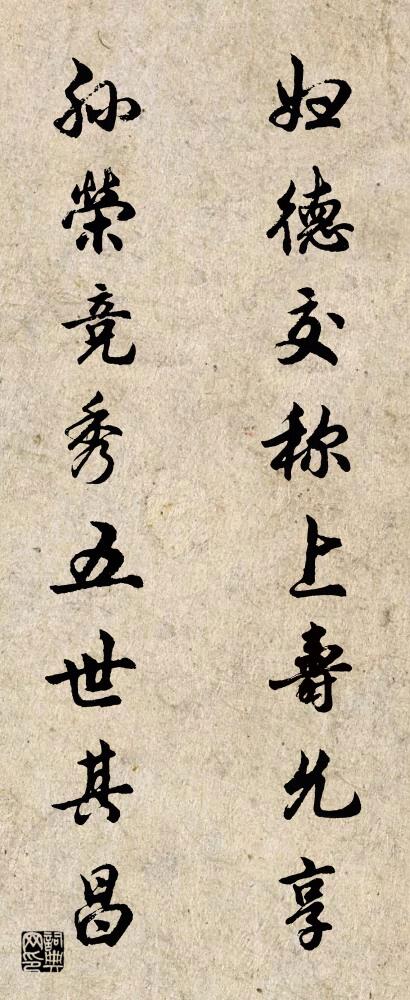 妇德交称上寿允享
孙荣竞秀五世其昌
詞典网印